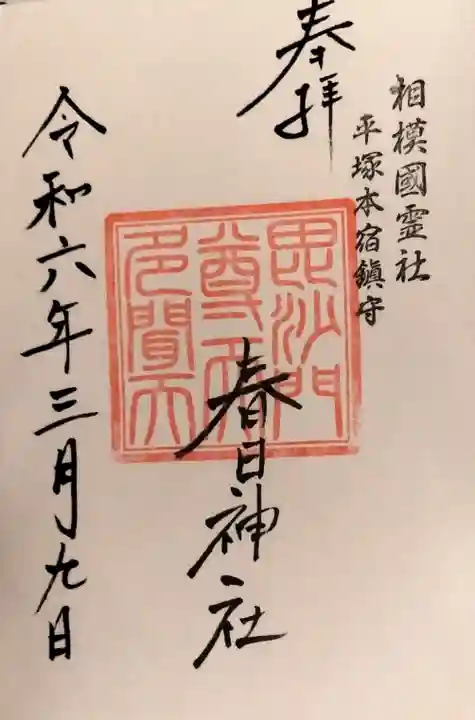 相模國霊社
平塚本宿鎮守
奉拝
春日神社
毘沙門
尊天
多聞天
令和六年三月九日